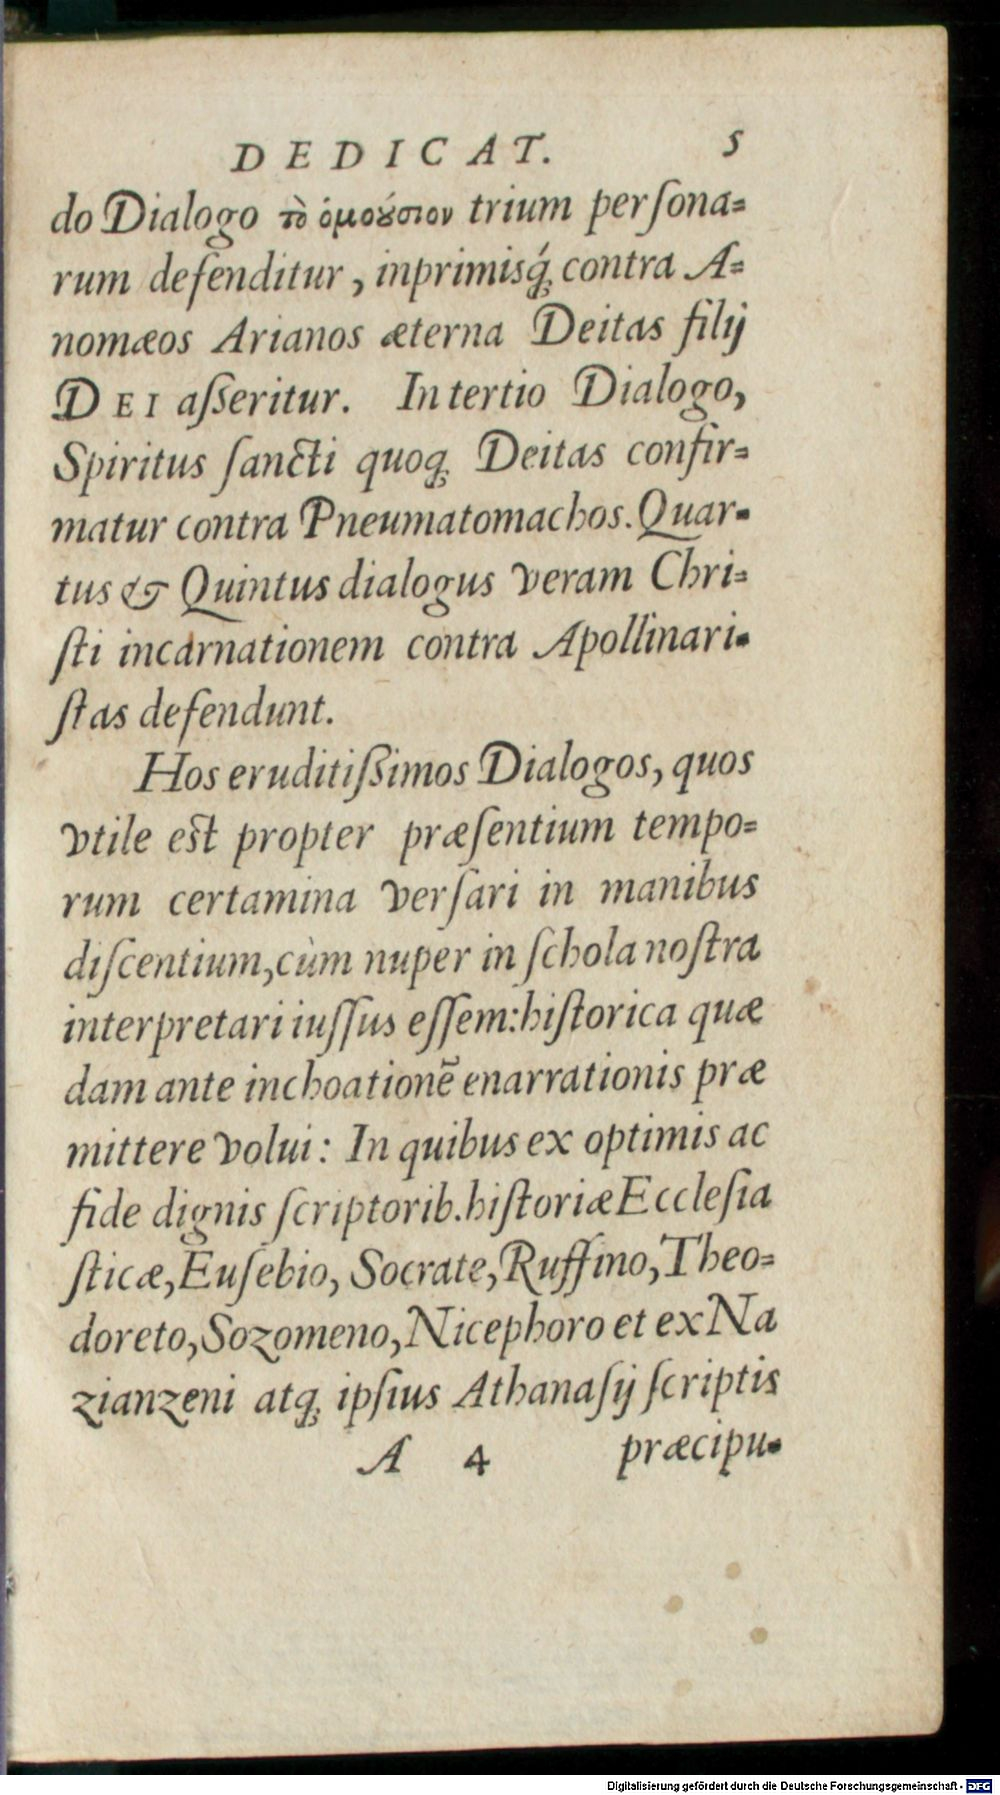 DEDICAT. 5
do Dialogo τὸ ὁμοούσιον trium persona=
rum defenditur, inprimisq́; contra A=
nomæos Arianos æterna Deitas filij
DEI aſſeritur. In tertio Dialogo,
Spiritus ſancti quoq; Deitas confir=
matur contra Pneumatomachos. Quar=
tus & Quintus dialogus veram Chri=
ſti incarnationem contra Apollinari=
ſtas defendunt.
Hos eruditiſsimos Dialogos, quos
vtile est propter præſentium tempo=
rum certamina verſari in manibus
diſcentium, cùm nuper in ſchola noſtra
interpretari iuſſus eſſem: hiſtorica quæ
dam ante inchoationẽ enarrationis præ
mittere volui: In quibus ex optimis ac
fide dignis ſcriptorib. hiſtoriæ Eccleſia
ſticæ, Euſebio, Socrate, Ruffino, Theo=
doreto, Sozomeno, Nicephoro et ex Na
zianzeni atq; ipſius Athanaſij ſcriptis
A 4 præcipu=
Digitalisierung gefördert durch die Deutsche Forschungsgemeinschaft - DFG